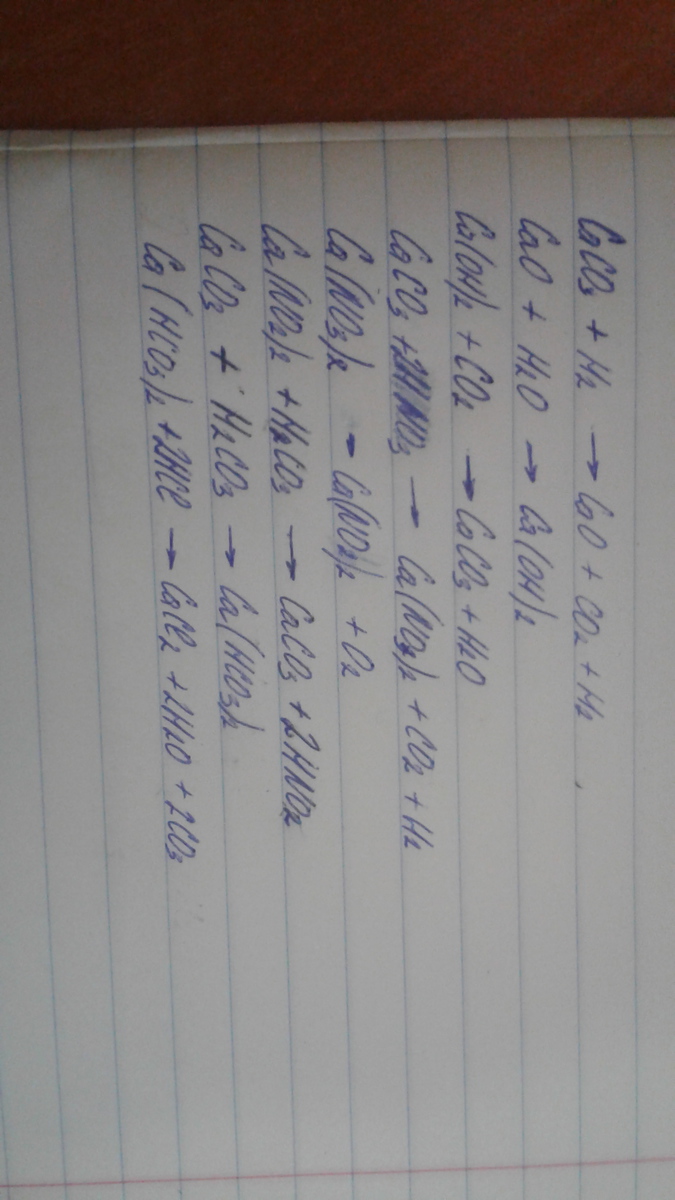 CaCO₃ + H₂ → CaO + CO₂ + H₂
CaO + H₂O → Ca(OH)₂
Ca(OH)₂ + CO₂ → CaCO₃ + H₂O
CaCO₃ + 2HNO₃ → Ca(NO₃)₂ + CO₂ + H₂
Ca(NO₃)₂ → Ca(NO₂)₂ + O₂
Ca(NO₂)₂ + H₂CO₃ → CaCO₃ + 2HNO₂
CaCO₃ + H₂CO₃ → Ca(HCO₃)₂
Ca(HCO₃)₂ + 2HCl → CaCl₂ + 2H₂O + 2CO₃